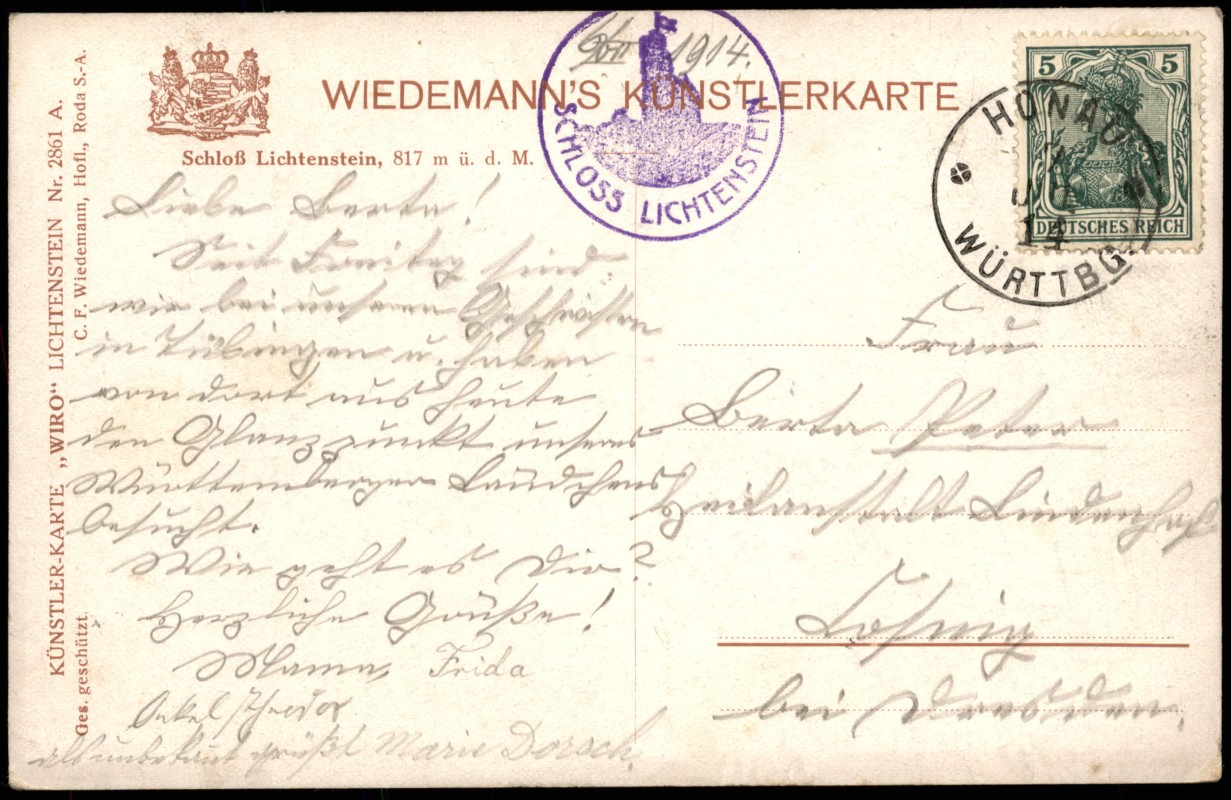 WIEDEMANN'S KÜNSTLERKARTE
Schloß Lichtenstein, 817 m ü. d. M.
1914.
SCHLOSS LICHTENSTEIN
5 5
DEUTSCHES REICH
HONAU
14
WÜRTTBG.
KÜNSTLER-KARTE „WIRO“ LICHTENSTEIN Nr. 2861 A.
Ges. geschützt.
C. F. Wiedemann, Hofl., Roda S.-A.
Liebe Berta!
Seit Freitag sind
wir bei unseren Geschwistern
in Tübingen u. haben
von dort aus heute
den Glanzpunkt unseres
Württemberger Ländchens
besucht.
Wie geht es Dir?
Herzliche Grüße!
Mama, Frida
Onkel
als unbekannt grüßt Marie Dorsch.
Frau
Berta Peter
Heilanstalt Lindenhof
Coswig
bei Dresden.